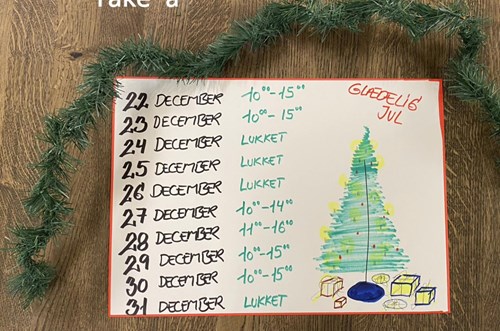 Take a
22 DECEMBER 10⁰⁰-15⁰⁰
23 DECEMBER 10⁰⁰-15⁰⁰
24 DECEMBER LUKKET
25 DECEMBER LUKKET
26 DECEMBER LUKKET
27 DECEMBER 10⁰⁰-14⁰⁰
28 DECEMBER 11⁰⁰-16⁰⁰
29 DECEMBER 10⁰⁰-15⁰⁰
30 DECEMBER 10⁰⁰-15⁰⁰
31 DECEMBER LUKKET
GLÆDELIG
JUL